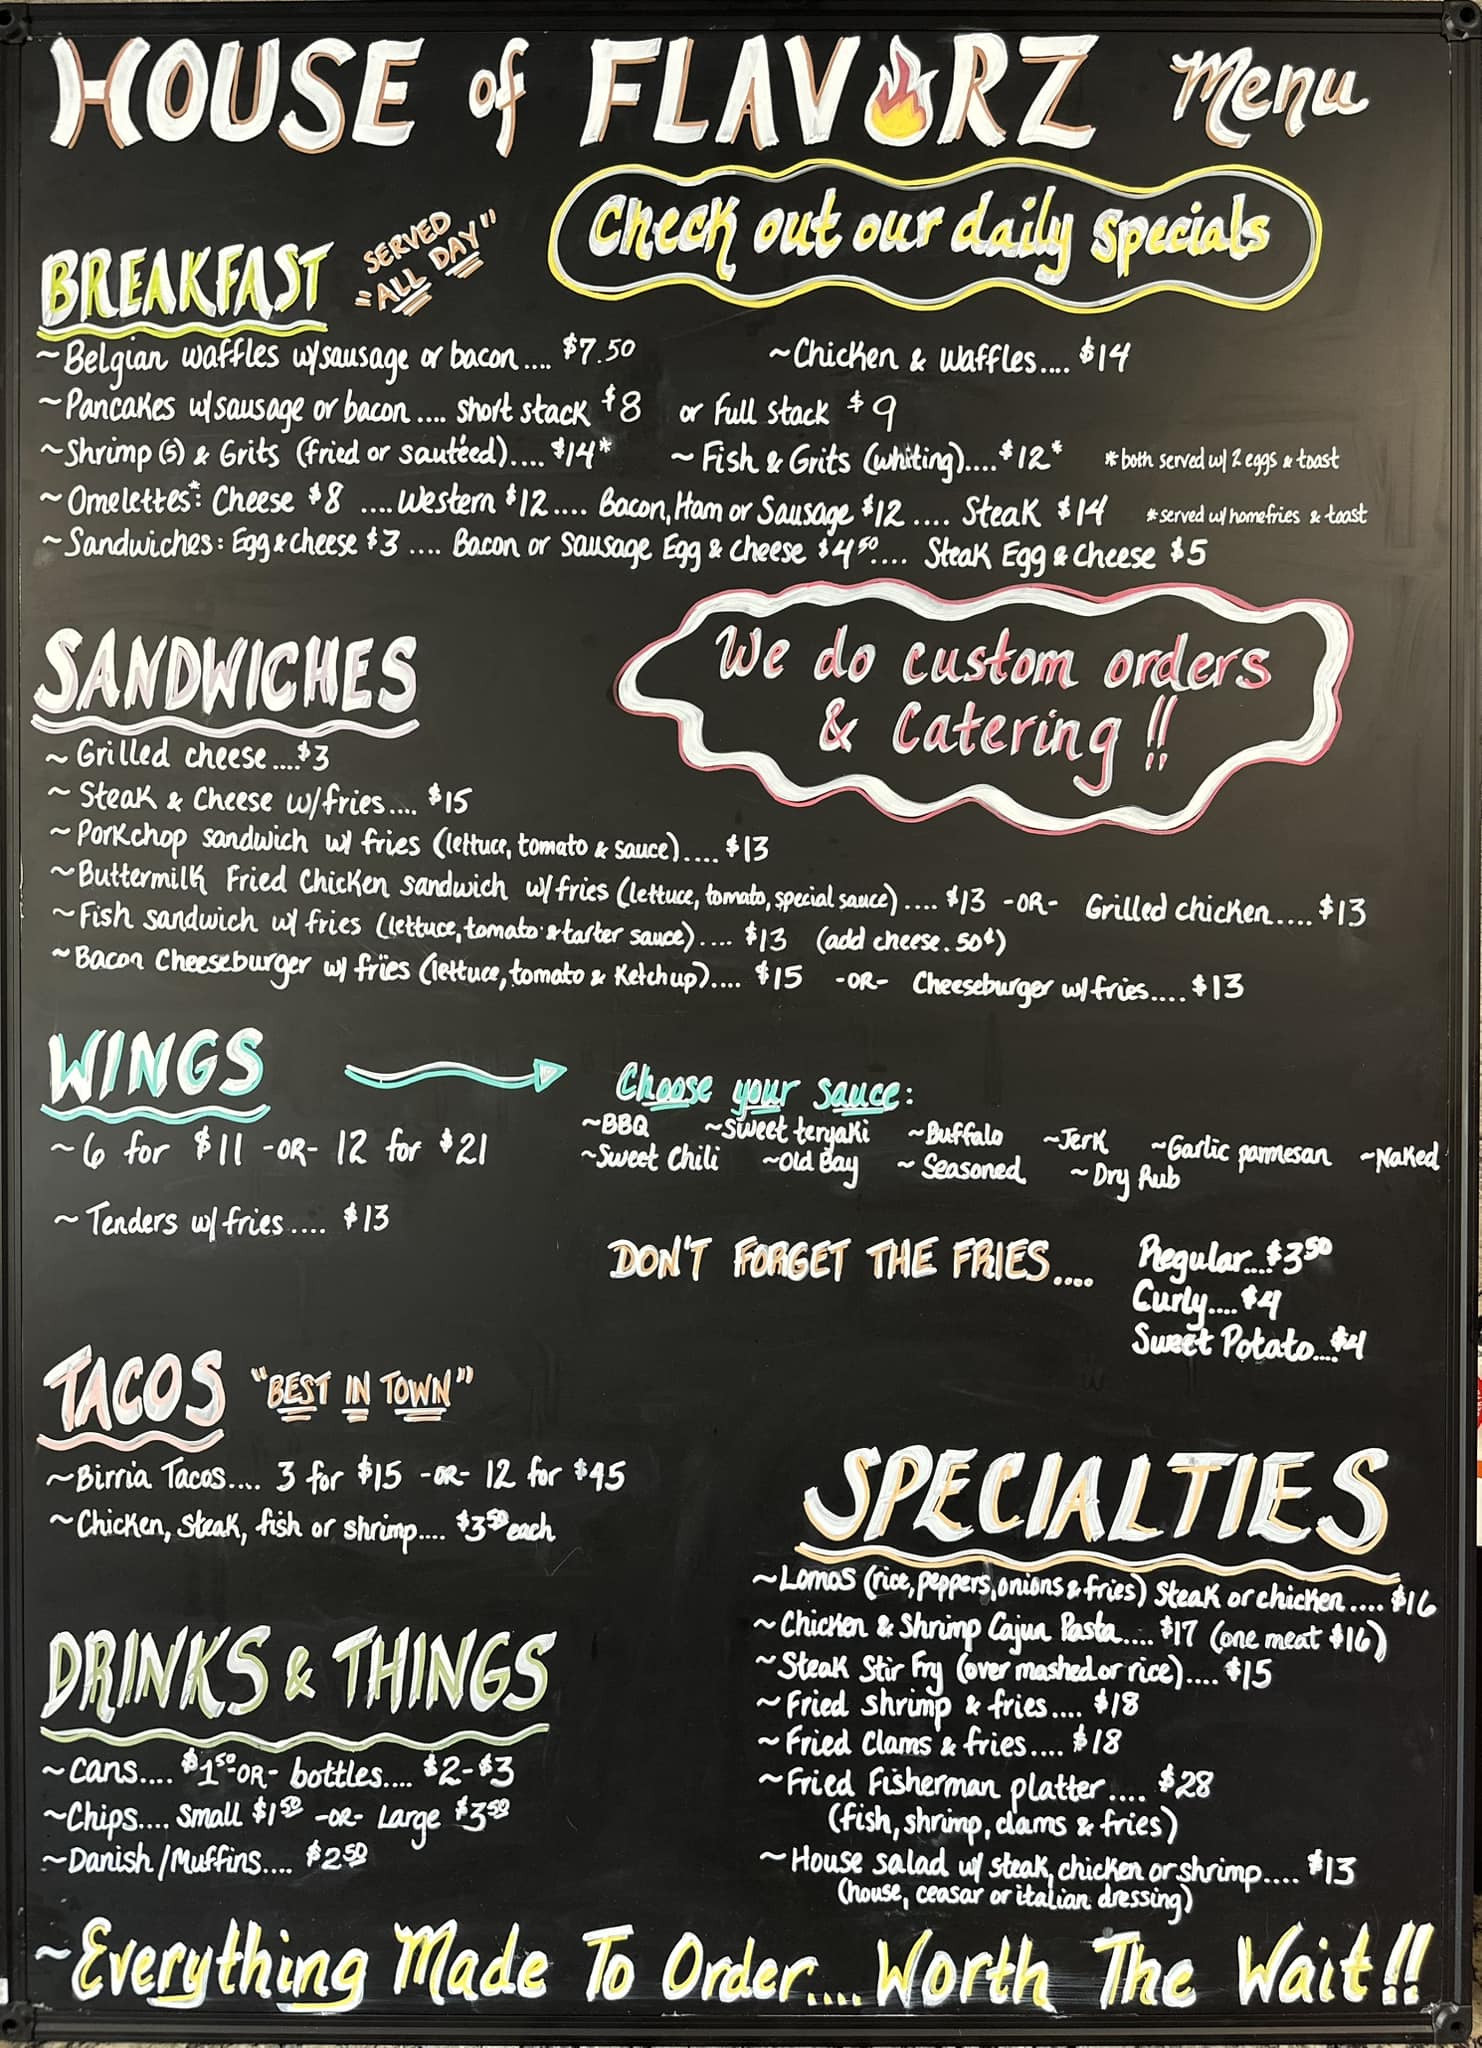 HOUSE of FLAVORZ Menu
Check out our daily specials
BREAKFAST
SERVED
"ALL DAY"
~Belgian waffles w/sausage or bacon.... $7.50 ~Chicken & Waffles.... $14
~Pancakes w/sausage or bacon.... short stack $8 or Full stack $9
~Shrimp (5) & Grits (fried or sautéed).... $14* ~Fish & Grits (whiting).... $12* *both served w/ 2 eggs & toast
~Omelettes*: Cheese $8 ....Western $12.... Bacon, Ham or Sausage $12 .... Steak $14 *served w/ homefries & toast
~Sandwiches: Egg & cheese $3 .... Bacon or Sausage Egg & Cheese $4 50.... Steak Egg & Cheese $5
We do custom orders
& Catering!!
SANDWICHES
~Grilled cheese....$3
~Steak & Cheese w/fries.... $15
~Porkchop sandwich w/ fries (lettuce, tomato & sauce).... $13
~Buttermilk Fried Chicken sandwich w/fries (lettuce, tomato, special sauce).... $13 -OR- Grilled chicken.... $13
~Fish sandwich w/ fries (lettuce, tomato & tarter sauce).... $13 (add cheese .50¢)
~Bacon Cheeseburger w/ fries (lettuce, tomato & Ketchup).... $15 -OR- Cheeseburger w/fries.... $13
WINGS
~6 for $11 -OR- 12 for $21
~Tenders w/fries.... $13
Choose your sauce:
~BBQ ~Sweet teryaki ~Buffalo ~Jerk ~Garlic parmesan ~Naked
~Sweet Chili ~Old Bay ~Seasoned ~Dry Rub
DON'T FORGET THE FRIES....
Regular....$3 50
Curly....$4
Sweet Potato....$4
TACOS "BEST IN TOWN"
~Birria Tacos.... 3 for $15 -OR- 12 for $45
~Chicken, Steak, fish or shrimp.... $3 50 each
DRINKS & THINGS
~Cans.... $1 50 -OR- bottles.... $2-$3
~Chips.... Small $1 50 -OR- Large $3 50
~Danish/Muffins.... $2 50
SPECIALTIES
~Lomos (rice, peppers, onions & fries) Steak or chicken.... $16
~Chicken & Shrimp Cajun Pasta.... $17 (one meat $16)
~Steak Stir Fry (over mashed or rice).... $15
~Fried Shrimp & fries.... $18
~Fried Clams & fries.... $18
~Fried Fisherman platter.... $28
(fish, shrimp, clams & fries)
~House salad w/ steak, chicken or shrimp.... $13
(house, ceasar or italian dressing)
~Everything Made To Order.... Worth The Wait!!